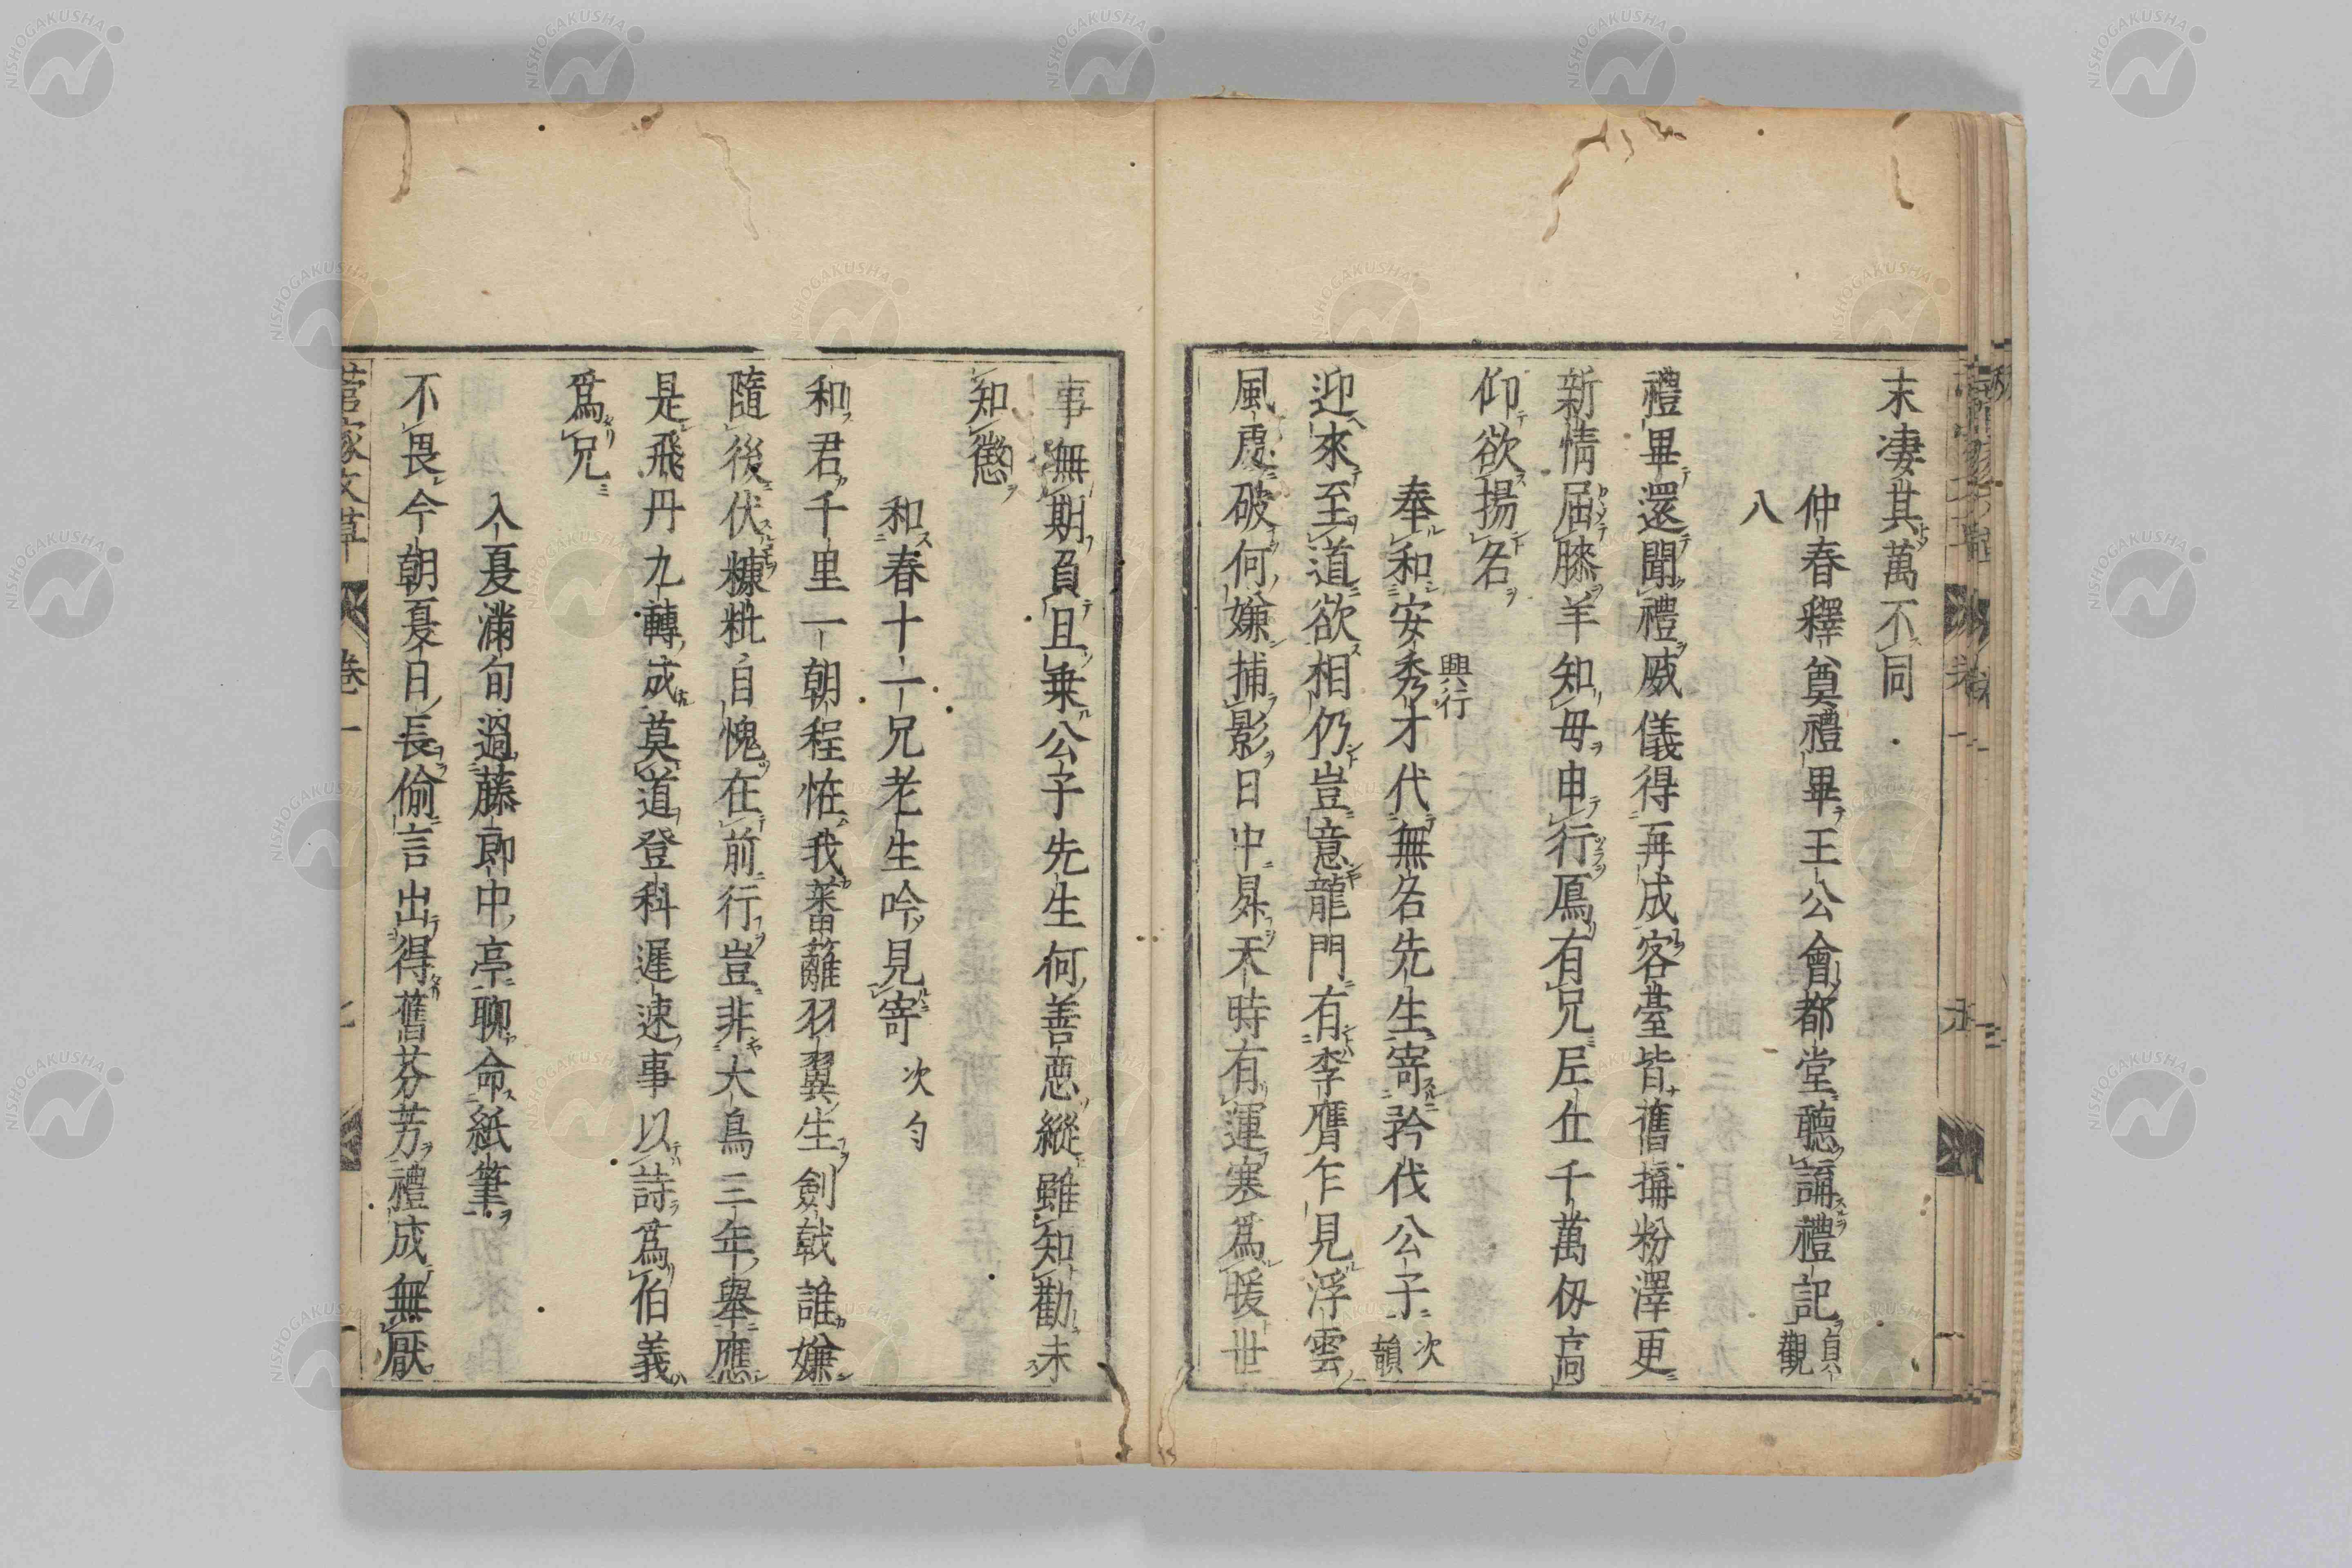 末凄其萬不同
仲春釋奠禮畢王公會都堂聽講禮記 貞觀
八
禮畢還聞禮威儀得再成容臺皆舊搆粉澤更
新情屈膝羊知母申行鴈有兄丘仕千萬仭高
仰欲揚名
興行
奉和安秀才代無名先生寄矜伐公子 次韻
迎來至道欲相仍豈意龍門有李膺乍見浮雲
風處破何嫌捕影日中昇天時有運寒爲暖世
事無期負且乗公子先生何善惡縱雖知勸未
知懲
和春十一兄老生吟見寄 次匀
和君千里一朝程恠我蕃蘺羽翼生劍戟誰嫌
隨後伏糠粃自愧在前行豈非大鳥三年擧應
是飛丹九轉成莫道登科遲速事以詩爲伯義
爲兄
入夏滿旬過藤郎中亭聊命紙筆
不畏今朝夏日長偷言出得舊芬芳禮成無厭
菅家文草 卷一